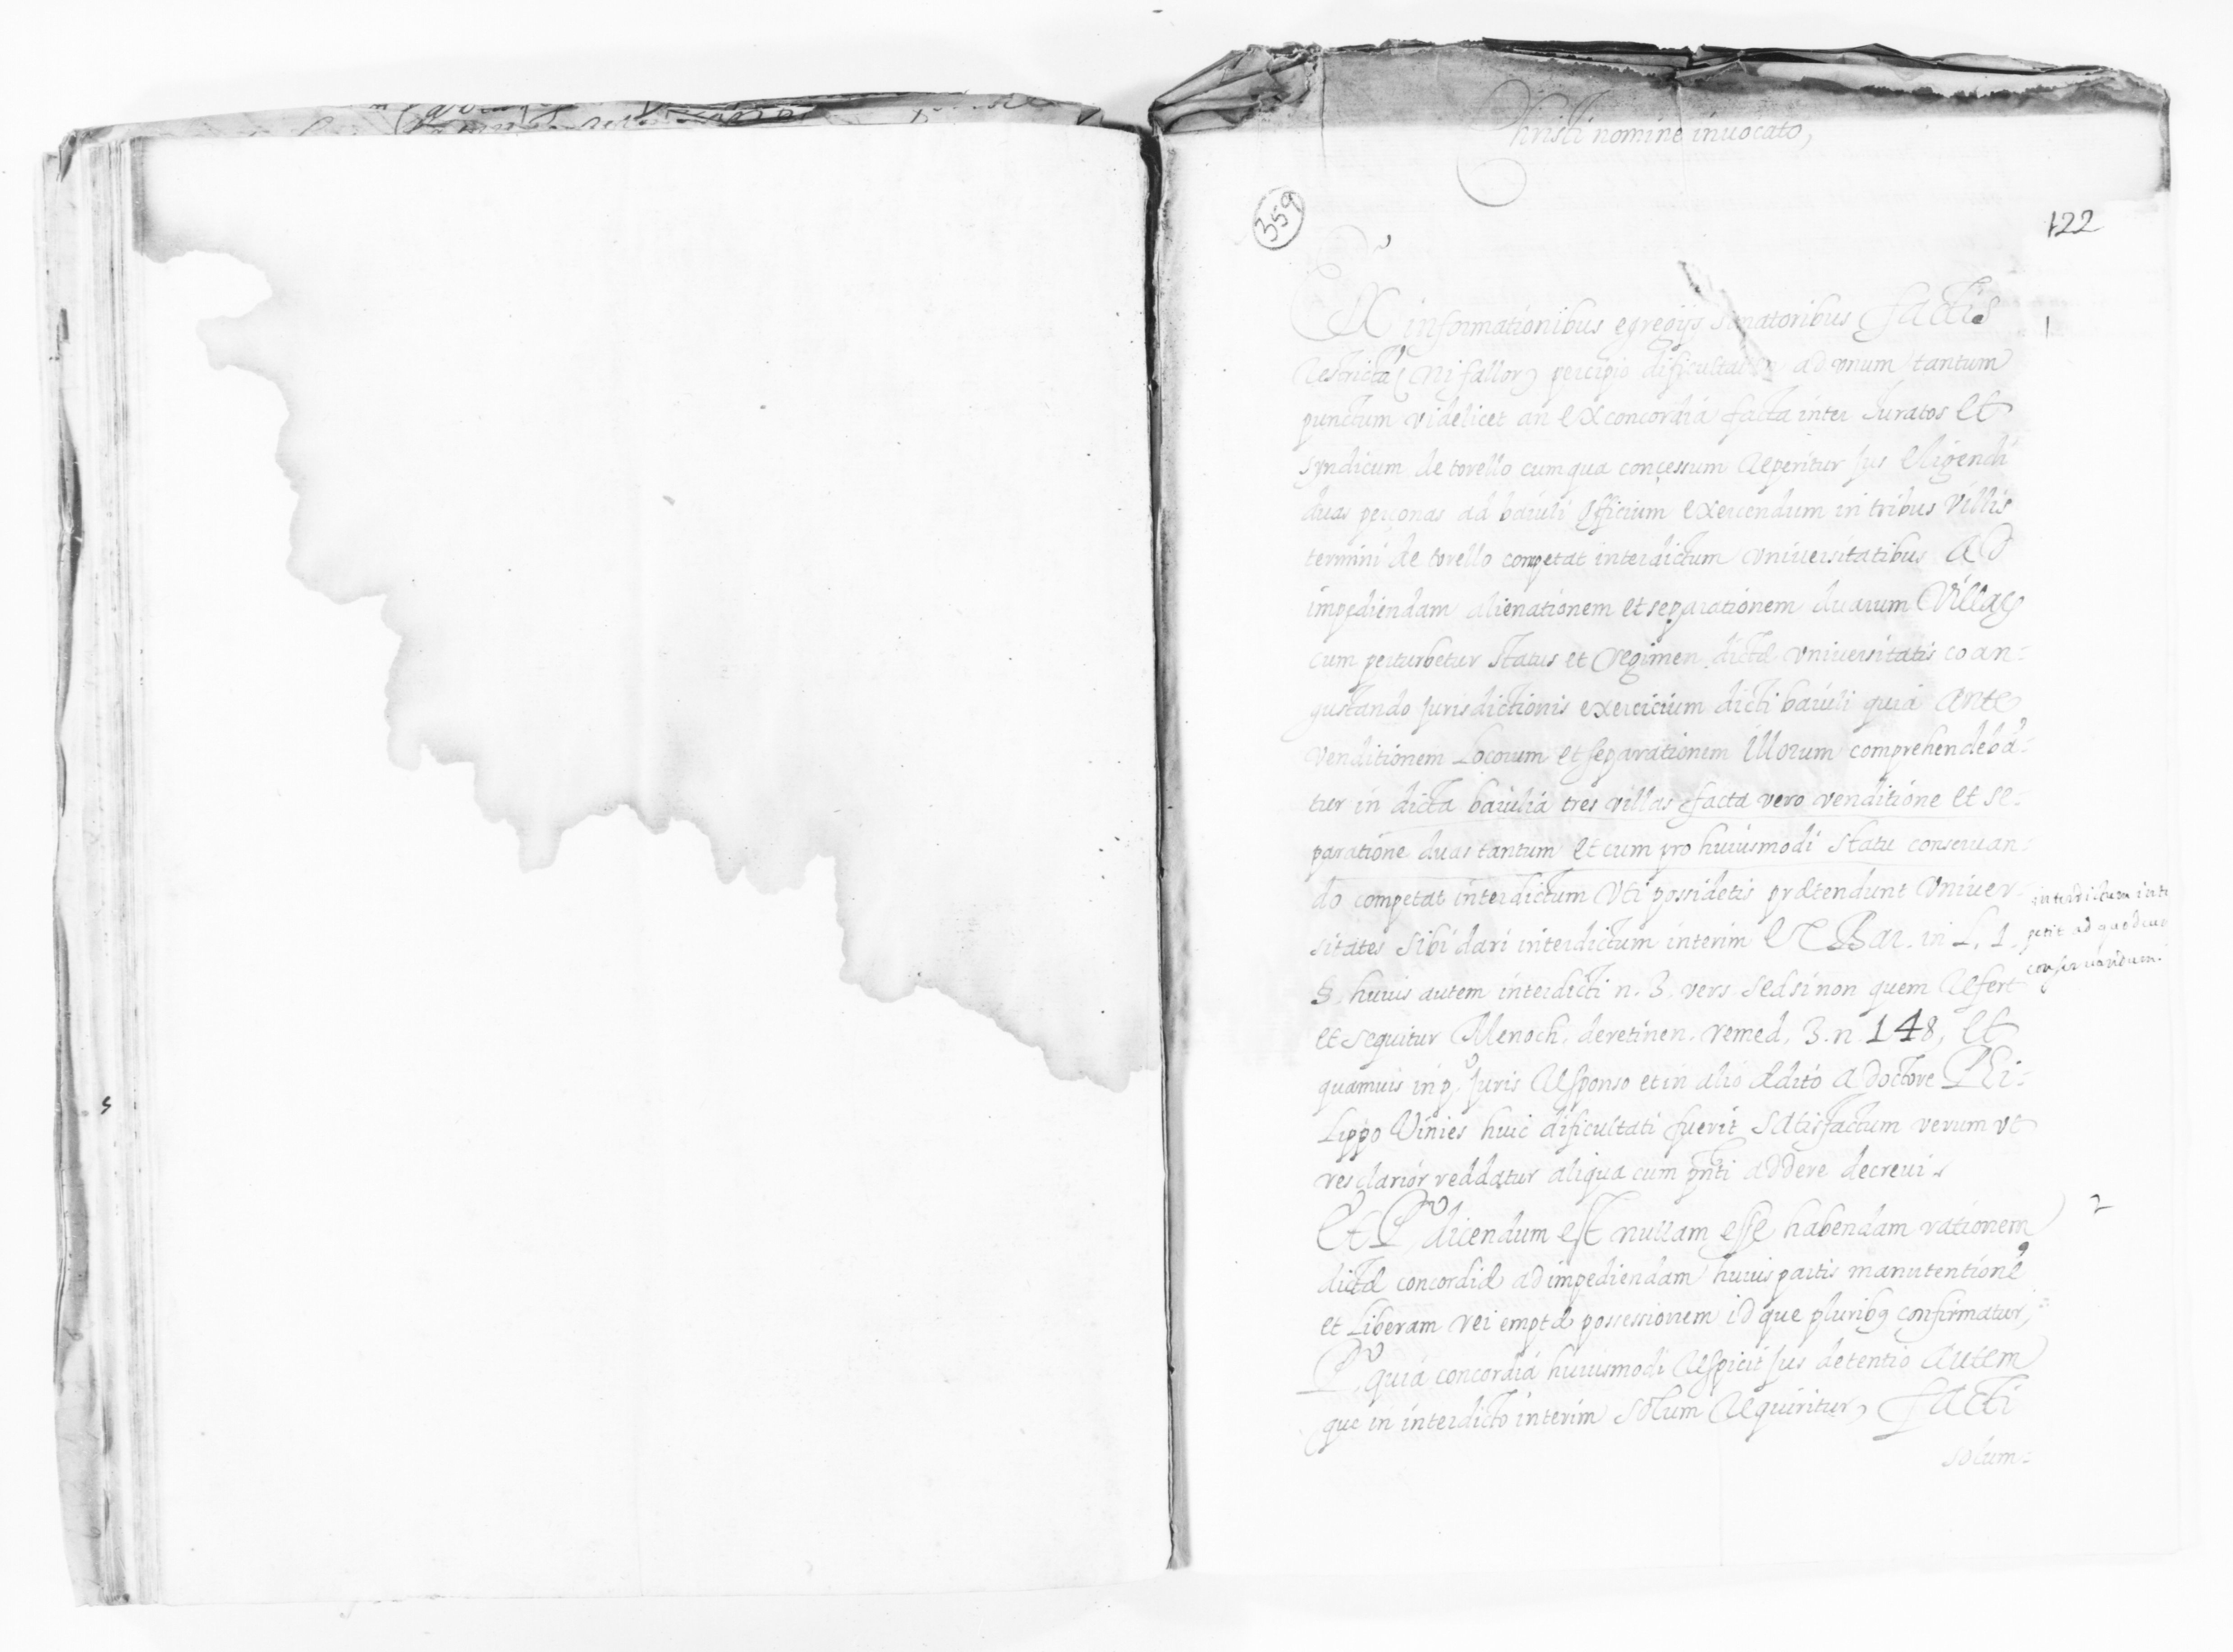 Christi nomine inuocato,
359
122
Ex informationibus egregijs senatoribus factis
1
restricta (ni fallor) percipio dificultatem ad vnum tantum
punctum videlicet an ex concordia facta inter Iuratos et
syndicum de torello cum qua concessum reperitur jus eligendi
duas personas ad baiuli officium exercendum in tribus villis
termini de torello competat interdictum vniuersitatibus ad
impediendam alienationem et separationem duarum villaꝝ
cum perturbetur status et regimen dictæ vniuersitatis coan-
gustando jurisdictionis exercicium dicti baiuli quia ante
venditionem Locorum et separationem illorum comprehendeba-
tur in dicta baiulia tres villas facta vero venditione et se-
paratione duas tantum et cum pro huiusmodi statu conseruan-
do competat interdictum vti possidetis prætendunt vniuer-
sitates sibi dari interdictum interim ex Bar. in L. 1.
§. huius autem interdicti n. 3. vers sed si non quem refert
interdictum inte
petit ad
conseruandum.
et sequitur Menoch. de retinen. remed. 3. n. 148, et
quamuis in pº juris responso et in alio ædito a doctore Phi-
Lippo Vinies huic dificultati fuerit satisfactum verum vt
res clarior reddatur aliqua cum pnti addere decreui.
Et Pº dicendum est nullam esse habendam rationem
2
dictæ concordiæ ad impediendam huius partis manutentionē
et Liberam rei emptæ possessionem idque pluribꝰ confirmatur,
Pº quia concordia huiusmodi respicit jus detentio autem
que in interdicto interim solum requiritur, facti
solum-